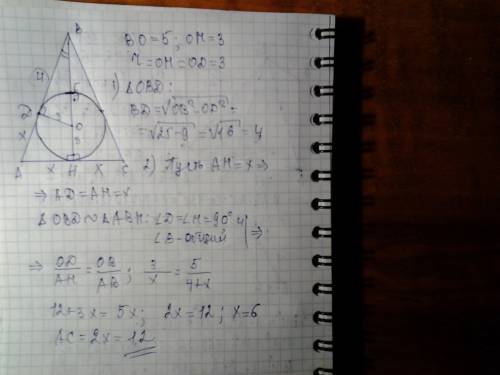 B
4
5
D
3
O
3
x
A x H x C
BO=5; OH=3
r=OH=OD=3
1) ΔOBD:
BD=√OB²-OD² =
=√25-9=√16=4
2) Пусть AH=x ⇒
⇒ AD=AH=x
ΔOBD∾ΔABH: ∠D=∠H=90° и
∠B-общий ⇒
⇒ OD/AH = OB/AB; 3/x = 5/4+x
12+3x=5x; 2x=12; x=6
AC=2x=12